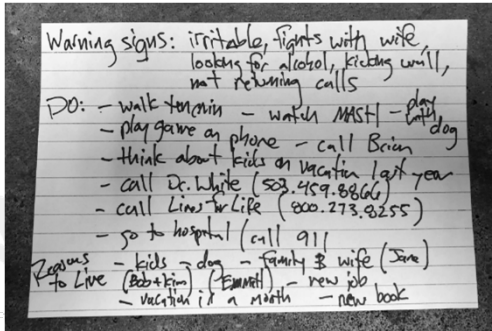 Warning signs: irritable, fights with wife,
looking for alcohol, kicking wall,
not returning calls
DO: - walk 10 min - watch MASH - play with dog
- play game on phone - call Brian
- think about kids on vacation last year
- call Dr. White (503.459.8866)
- call Lines for Life (800.273.8255)
- go to hospital (call 911
Reasons to Live - kids - dog - family & wife (Jane)
(Bob + Kim) (Emmett) - new job
- vacation in a month - new book